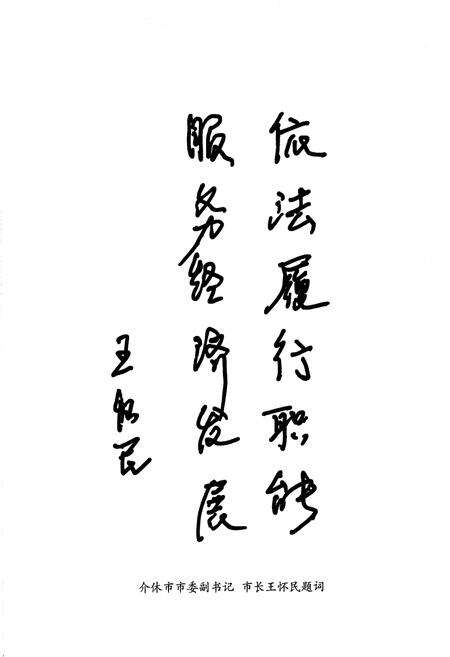 依法履行职能
服务经济发展
王怀民
介休市市委副书记 市长王怀民题词